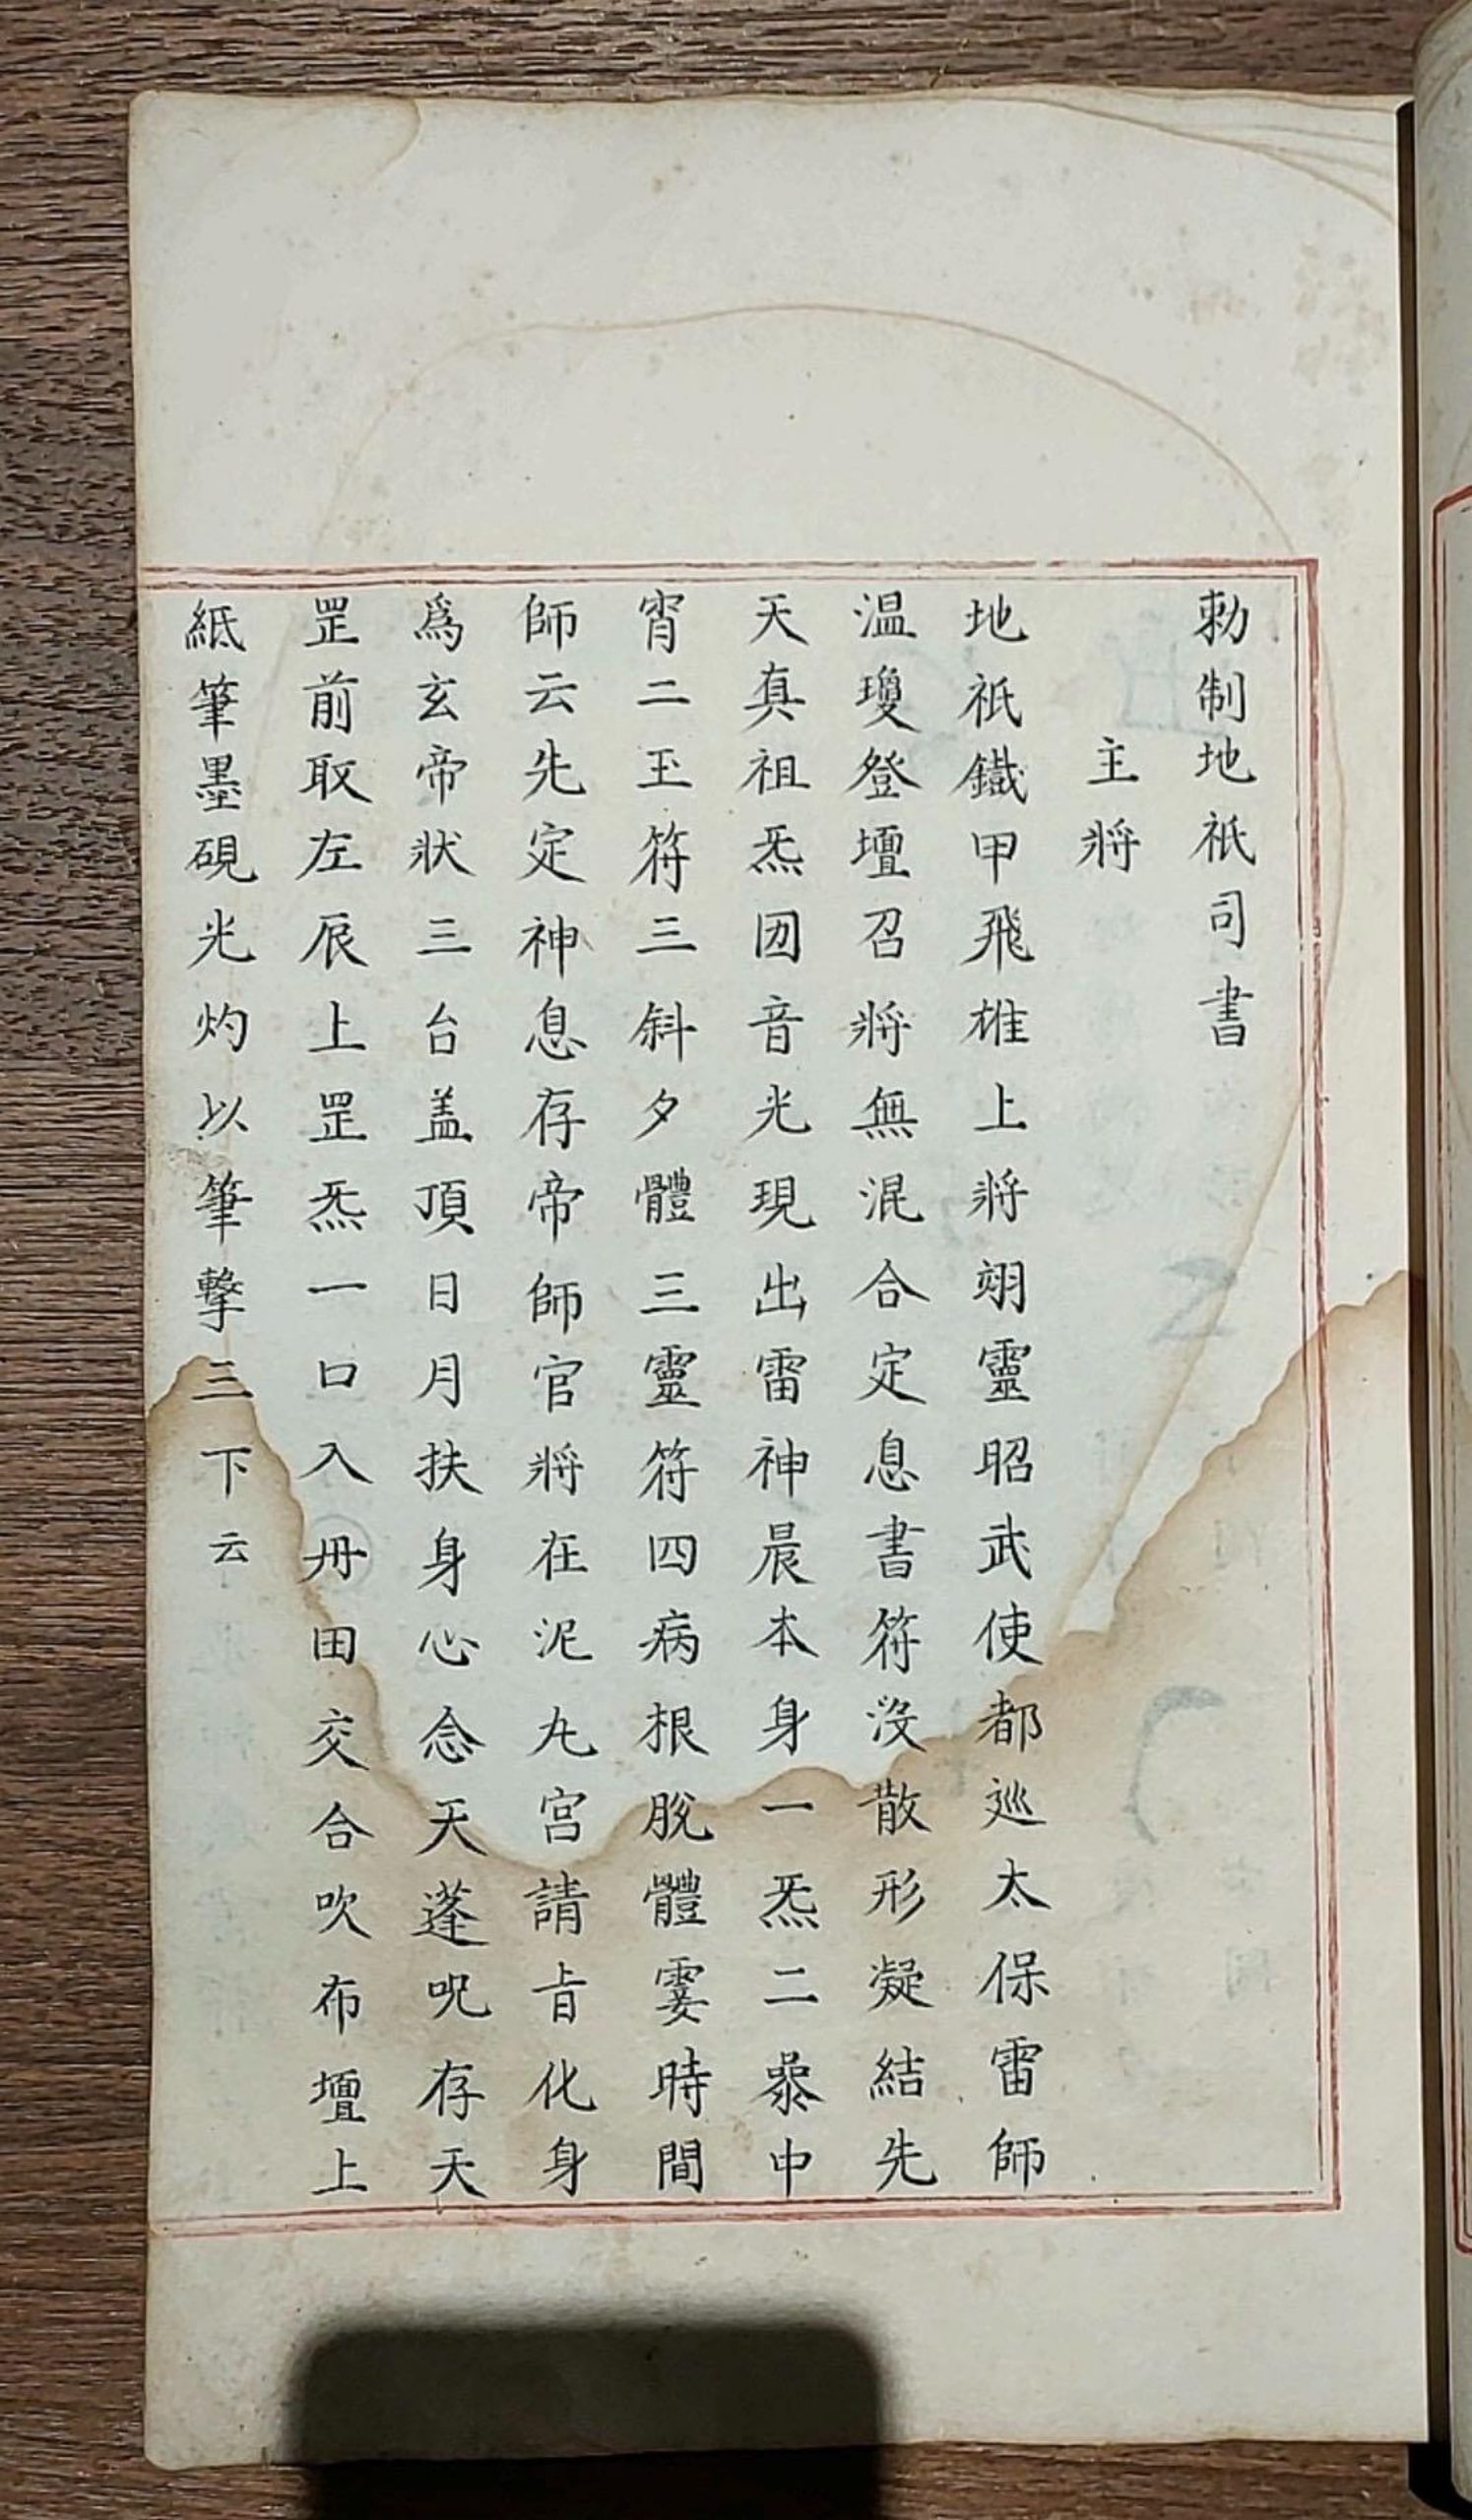 勅制地祇司書
主將
地祇鐵甲飛雄上將翊靈昭武使都巡太保雷師
温瓊登壇召將無混合定息書符没散形凝結先
天真祖炁囡音光現出雷神晨本身一炁二槑中
宵二玉符三斜夕體三靈符四病根脫體霎時間
師云先定神息存帝師官將在泥九宫請㫖化身
爲玄帝狀三台盖頂日月扶身心念天蓬呪存天
罡前取左辰上罡炁一口入丹田交合吹布壇上
紙筆墨硯光灼以筆擊三下云